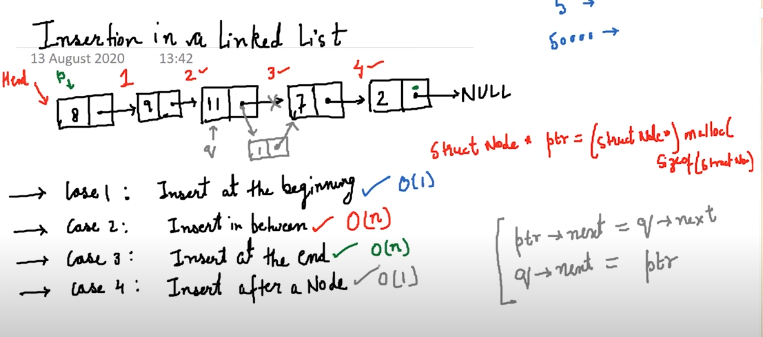 Insertion in a Linked List
5 →
50000 →
13 August 2020 13:42
Head P↓ 1 2✓ 3✓ 4✓
8 → 9 → 11 → 7 → 2 → NULL
q 1
Struct Node * ptr = (struct Node*) malloc(
sizeof(struct Node)
→ Case 1 : Insert at the beginning ✓ O(1)
→ Case 2 : Insert in between ✓ O(n)
→ Case 3 : Insert at the end ✓ O(n)
→ Case 4 : Insert after a Node ✓ O(1)
ptr → next = q → next
q → next = ptr